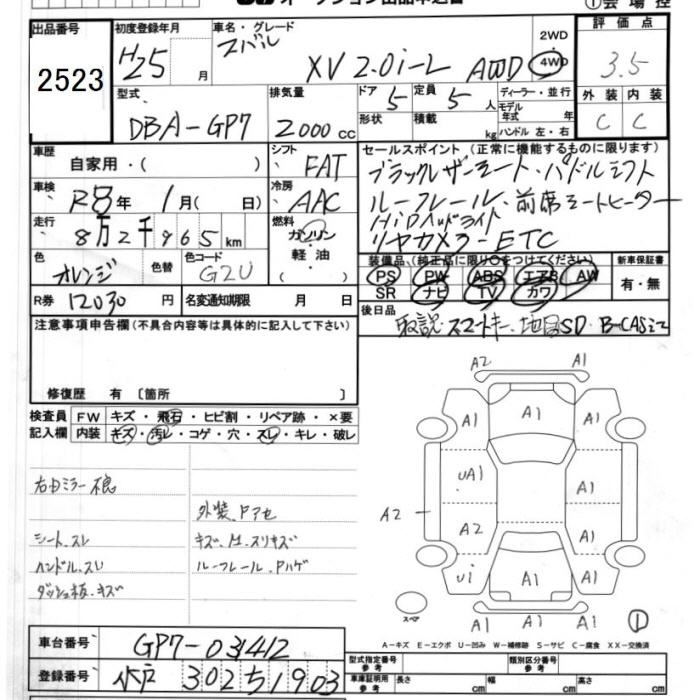 オークション出品申込書 ①会場控
出品番号 初度登録年月 車名・グレード 2WD 評価点
2523 H25 月 スバル XV 2.0i-L AWD 4WD 3.5
型式 排気量 ドア 定員 ディーラー・並行 外装 内装
DBA-GP7 2000 cc 5 5 人 モデル年式 年 C C
形状 積載 kg ハンドル 左・右
車歴 シフト セールスポイント (正常に機能するものに限ります)
自家用・( ) FAT ブラックレザーシート・パドルシフト
車検 冷房 ルーフレール・前席シートヒーター
R8年 1月( 日) AAC HiDヘッドライト
走行 燃料 リヤカメラ-ETC
8万2千965km ガソリン
色 色替 色コード 軽・油 装備品、(純正品に限り○をつけてください) 新車保証書
オレンジ G2U ( ) PS PW ABS エアB AW 有・無
R券 12030 円 名変通知期限 月 日 SR ナビ TV カワ
後日品
注意事項申告欄(不具合内容等は具体的に記入して下さい) 取説・スマートキー、地図SD・B-CASミニ
修復歴 有 〔箇所 〕
検査員 FW キズ・飛石・ヒビ割・リペア跡・×要
記入欄 内装 キズ・汚レ・コゲ・穴・スレ・キレ・破レ
A2
A1 A1 A1
右ドミラー不良
UA1 A1
外装、Pアセ
A2
シート、スレ キズ、M、スリキズ A2 A1
ハンドル、スレ ルーフレール、Pハゲ
Ui A1 A1
ダッシュ板、キズ
スペア A1 A1 A1 ①
A-キズ E-エクボ U-凹み W-補修跡 S-サビ C-腐食 XX-交換済
車台番号 GP7-031412 型式指定番号 参考 類別区分番号 参考
登録番号 水戸 302 す 1903 車庫証明用 参考 長さ cm 幅 cm 高さ cm